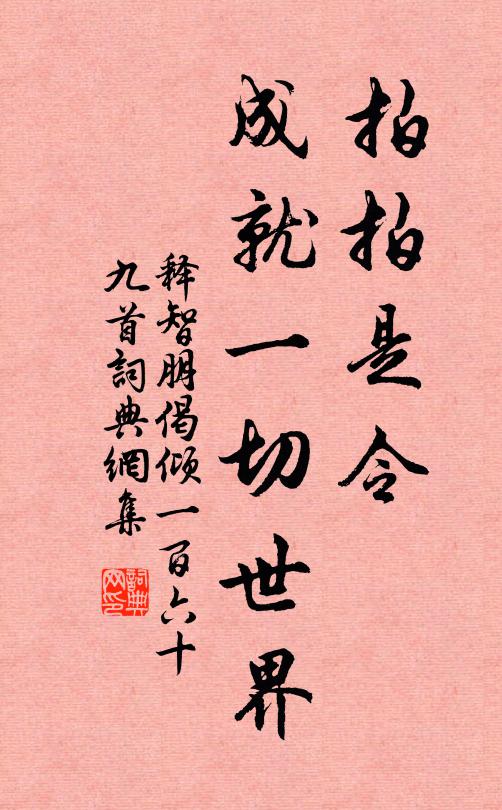 拍拍是令
成就一切世界
释智朋偈倾一百六十
九首詞典網集
詞典
网印